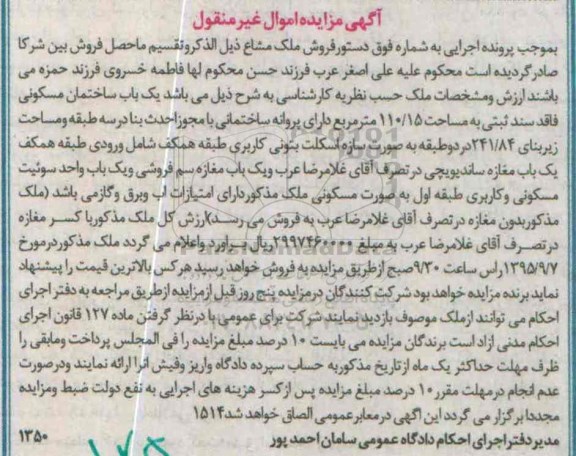 آگهی مزایده اموال غیر منقول
بموجب پرونده اجرایی به شماره فوق دستورفروش ملک مشاع ذیل الذکروتقسیم ماحصل فروش بین شرکا
صادرگردیده است محکوم علیه علی اصغر عرب فرزند حسن محکوم لها فاطمه خسروی فرزند حمزه می
باشند ارزش ومشخصات ملک حسب نظریه کارشناسی به شرح ذیل می باشد یک باب ساختمان مسکونی
فاقد سند ثبتی به مساحت ۱۱۰/۱۵ متر مربع دارای پروانه ساختمانی با مجوزاحدث بنا درسه طبقه ومساحت
زیربنای ۲۴۱/۸۴دردوطبقه به صورت سازه اسکلت بتونی کاربری طبقه همکف شامل ورودی طبقه همکف
یک باب مغازه ساندیویچی در تصرف آقای غلامرضا عرب ویک باب مغازه سم فروشی ویک باب واحد سوئیت
مسکونی وکاربری طبقه اول به صورت مسکونی ملک مذکوردارای امتیازات اب وبرق وگازمی باشد (ملک
مذکوربدون مغازه در تصرف آقای غلامرضا عرب به فروش می رسد)ارزش کل ملک مذکوربا کسر مغازه
در تصرف آقای غلامرضا عرب به مبلغ ۲۹۹۷۴۶۰۰۰۰ریال براورد واعلام می گردد ملک مذکوردرمورخ
۱۳۹۵/۹/۷راس ساعت ۹/۳۰صبح ازطریق مزایده به فروش خواهد رسید هرکس بالاترین قیمت را پیشنهاد
نماید برنده مزایده خواهد بود شرکت کنندگان درمزایده پنج روز قبل ازمزایده ازطریق مراجعه به دفتر اجرای
احکام می توانند ازملک موصوف بازدید نمایند شرکت برای عمومی با درنظر گرفتن ماده ۱۲۷ قانون اجرای
احکام مدنی ازاد است برندگان مزایده می بایست ۱۰ درصد مبلغ مزایده را فی المجلس پرداخت ومابقی را
ظرف مهلت حداکثر یک ماه ازتاریخ مذکوربه حساب سپرده دادگاه واریز وفیش انرا ارائه نمایند ودرصورت
عدم انجام درمهلت مقرر ۱۰ درصد مبلغ مزایده پس ازکسر هزینه های اجرایی به نفع دولت ضبط ومزایده
مجددا برگزار می گردد این اگهی درمعابرعمومی الصاق خواهد شد۱۵۱۴
مدیر دفتر اجرای احکام دادگاه عمومی سامان احمد پور ۱۳۵۰